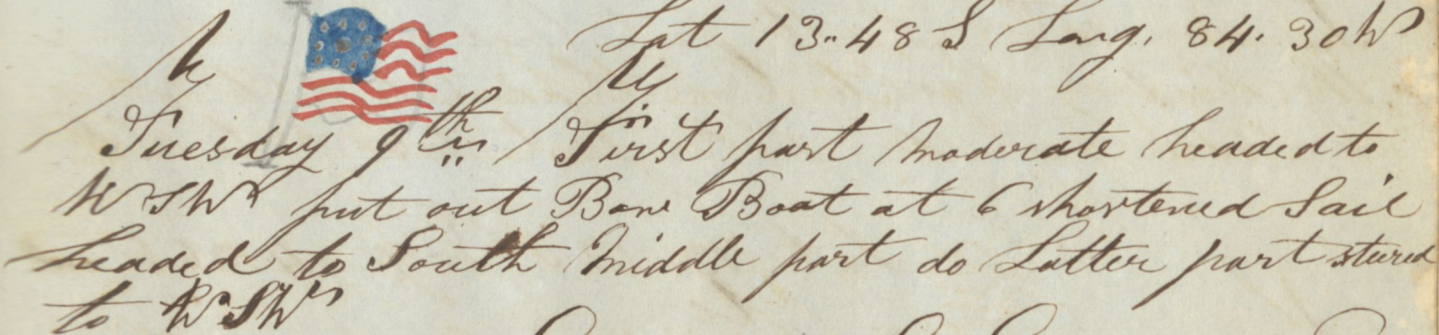 Lat 13..48 S Long. 84. 30 W
Tuesday 9th First part moderate headed to
WSW put out Bow Boat at 6 shortened Sail
headed to South Middle part do Latter part stured
to WSW